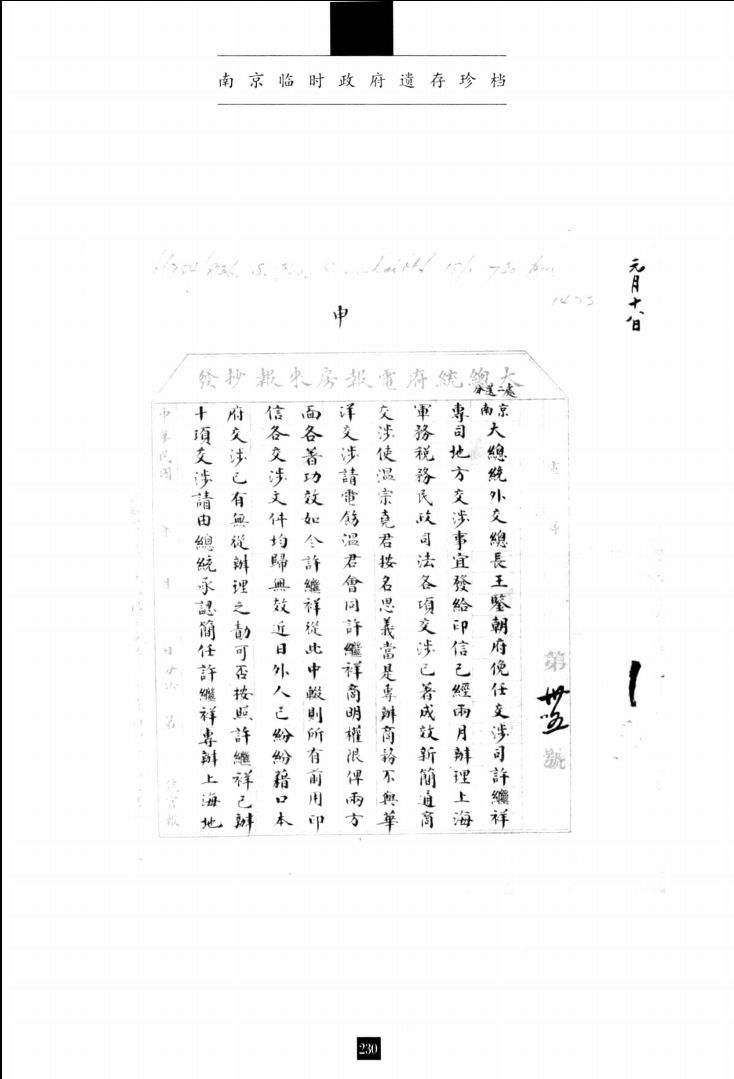 南京临时政府遗存珍档
元月十八日
申
大總統府電報房來報抄發
第卅四號
分送二處
南京
大總統外交總長王鑒朝府俛任交涉司許繼祥
專司地方交涉事宜發給印信已經兩月辦理上海
軍務稅務民政司法各項交涉已著成效新簡通商
交涉使溫宗堯君按名思義當是專辦商務不與華
洋交涉請電飭溫君會同許繼祥商明權限俾兩方
面各著功效如令許繼祥從此中輟則所有前用印
信各交涉文件均歸無效近日外人已紛紛藉口本
府交涉已有無從辦理之勸可否按照許繼祥已辦
十項交涉請由總統承認簡任許繼祥專辦上海地
中華民國 年 月 日
230